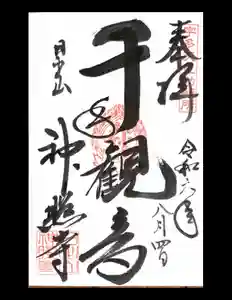 奉拝
令和六年
八月四日
千手観音
日出山
神照寺